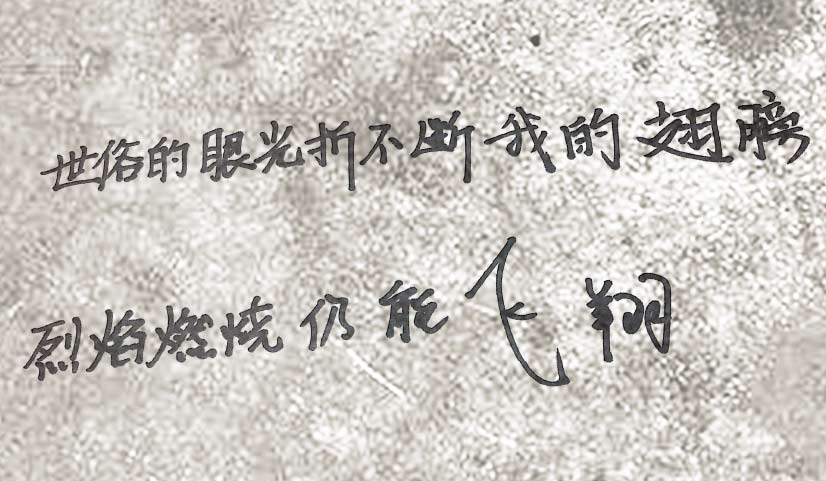 世俗的眼光折不断我的翅膀
烈焰燃烧仍能飞翔